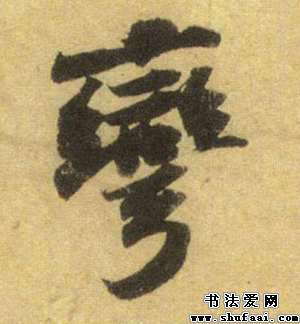 彎
书法爱网
www.shufaai.com